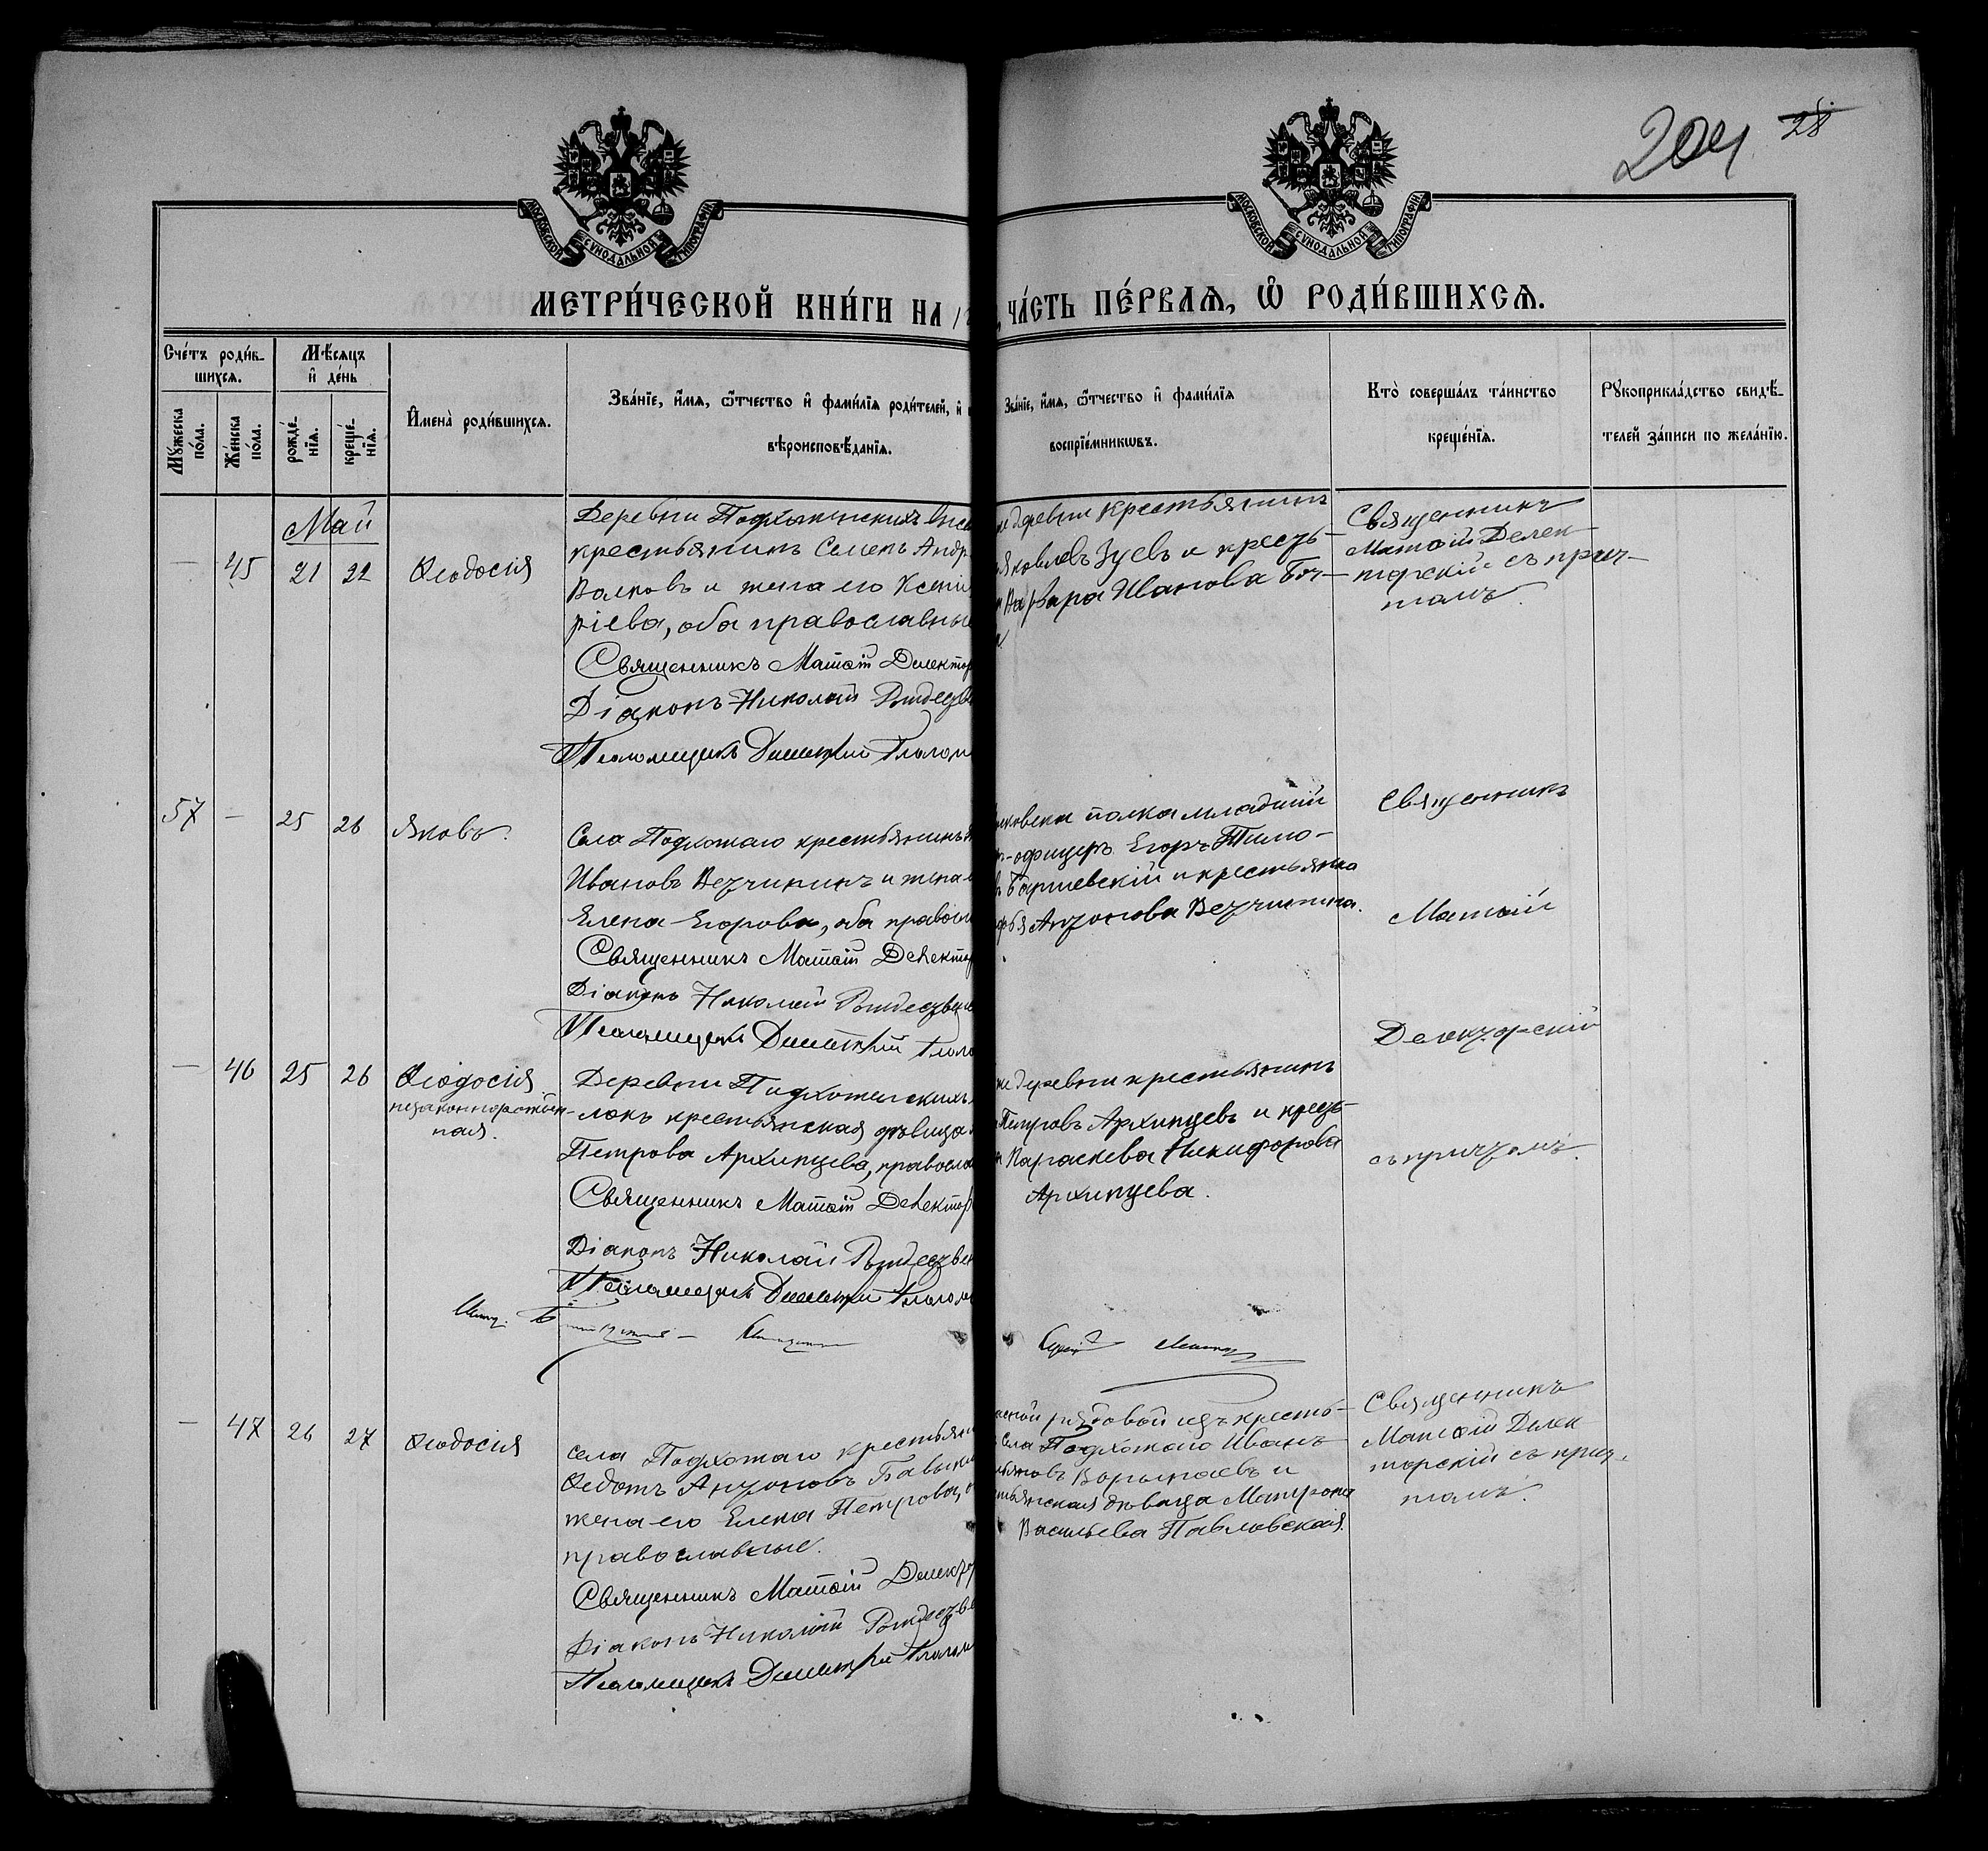 204 28
МОСКОВСКОЙ СУНОДАЛЬНОЙ ТИПОГРАФІИ
МОСКОВСКОЙ СУНОДАЛЬНОЙ ТИПОГРАФІИ
МЕТРИ́ЧЕСКОЙ КНИ́ГИ НА 1
ЧА́СТЬ ПЕ́РВАѦ, Ѽ РОДИ́ВШИХСѦ.
Сче́тъ роди́в-
шихсѧ.
Мѣ́сѧцъ
и҆ де́нь
Мꙋ́жеска
по́ла.
Же́нска
по́ла.
рожде́-
нїѧ.
креще́-
нїѧ.
И҆мена̀ роди́вшихсѧ.
Зва́нїе, и҆́мѧ, ѻ҆́тчество и҆ фами́лїѧ роди́телей, и҆
вѣроисповѣ́данїѧ.
Зва́нїе, и҆́мѧ, ѻ҆́тчество и҆ фами́лїѧ
воспрїе́мникѡвъ.
Кто̀ соверша́лъ та́инство
креще́нїѧ.
Рꙋкоприкла́дство свидѣ́-
телей за́писи по жела́нїю.
Май
— 45 21 22 Ѳеодосія
Деревни
крестьянинъ Семенъ Андр
Волковъ и жена его Ксені
ріева, оба православные
Священникъ Матѳій Делектор
Діаконъ Николай Рождеств
Псаломщикъ Димитрій
же деревни крестьянинъ
Яковлевъ Зуевъ и кресть-
Варвара Иванова
Священникъ
Матѳій Делек-
торскій съ прич-
томъ.
57 — 25 26 Яковъ.
Села Подхожаго крестьянинъ
Ивановъ Везчининъ и жена
Елена Егорова, оба правосл
Священникъ Матѳій Делектор
Діаконъ Николай Рождественс
Псаломщикъ Димитрій
полка младшій
-офицеръ Егоръ Тимо-
и крестьянка
Антонова Везчинина.
Священникъ
Матѳій
Делекторскій
съ причтомъ.
— 46 25 26 Ѳеодосія
незаконнорожден-
ная.
Деревни
крестьянская дѣвица
Петрова Архипцева, правосла
Священникъ Матѳій Делектор
Діаконъ Николай Рождествен
Псаломщикъ Димитрій
же деревни крестьянинъ
Петровъ Архипцевъ и кресть-
Параскева Никифорова
Архипцева.
— 47 26 27 Ѳеодосія
села Подхожаго крестьян
Ѳедотъ Антоновъ
жена его Елена Петрова, о
православные.
Священникъ Матѳій Делектор
Діаконъ Николай Рождестве
Псаломщикъ Димитрій
рядовой изъ кресть-
села Подхожаго Иванъ
и
дѣвица Матрона
Васильева Павловская.
Священникъ
Матѳій Делек
торскій съ прич-
томъ.